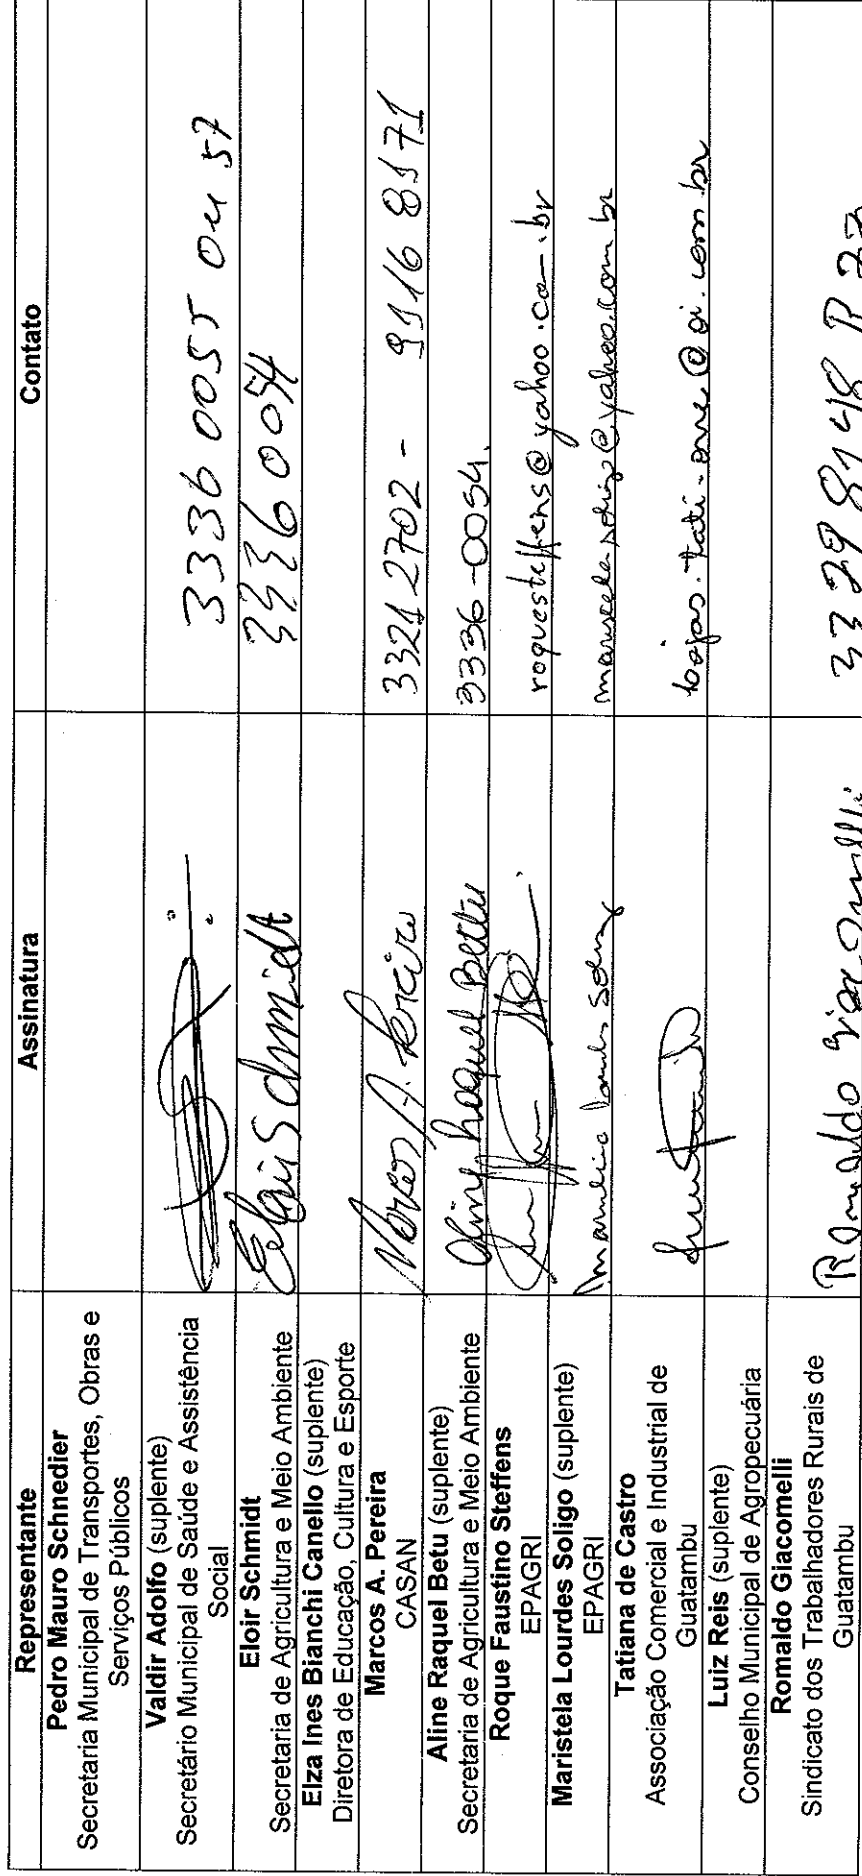 Representante
Assinatura
Contato
Pedro Mauro Schnedier
Secretaria Municipal de Transportes, Obras e
Serviços Públicos
Valdir Adolfo (suplente)
Secretário Municipal de Saúde e Assistência
Social
3336 0055 04 57
Eloir Schmidt
Secretaria de Agricultura e Meio Ambiente
Eloir Schmidt
3336 0054
Elza Ines Bianchi Canello (suplente)
Diretora de Educação, Cultura e Esporte
Marcos A. Pereira
CASAN
Marcos A. Pereira
3321 2702 - 9116 8171
Aline Raquel Betu (suplente)
Secretaria de Agricultura e Meio Ambiente
Aline Raquel Bettu
3336-0054.
Roque Faustino Steffens
EPAGRI
roquesteffens@yahoo.com.br
Maristela Lourdes Soligo (suplente)
EPAGRI
@yahoo.com.br
Tatiana de Castro
Associação Comercial e Industrial de
Guatambu
@oi.com.br
Luiz Reis (suplente)
Conselho Municipal de Agropecuária
Romaldo Giacomelli
Sindicato dos Trabalhadores Rurais de
Guatambu
Romaldo Giacomelli
3329 8148 R 23